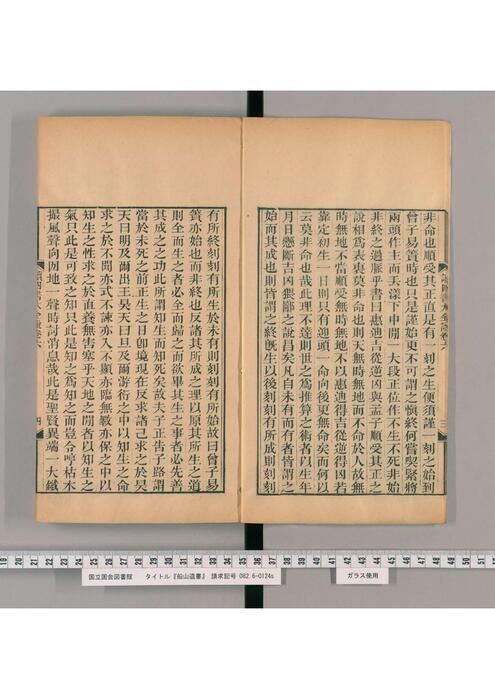 非命也順受其正直是有一刻之生便須謹一刻之始到
曾子易簀時也只是謹始更不可謂之愼終何嘗喫緊將
兩頭作主而丢漾下中閒一大段正位作不生不死非始
非終之過脈乎書曰惠迪吉從逆凶與孟子順受其正之
說相爲表裏莫非命也則天無時無地而不命於人故無
時無地不當順受無時無地不以惠迪得吉從逆得凶若
靠定初生一日則只有迎頭一命向後更無命矣而何以
云莫非命也哉此理不達則世之爲推算之術者以生年
月日懸斷吉凶猥鄙之說昌矣凡自未有而有者皆謂之
始而其成也則皆謂之終旣生以後刻刻有所成則刻刻
有所終刻刻有所生於未有則刻刻有所始故曰曾子易
簀亦始也而非終也反諸其所成之理以原其所生之道
則全而生之者必全而歸之而欲畢其生之事者必先善
其成之之功此所謂知生而知死矣故夫子正告子路謂
當於未死之前正生之日卽境現在反求諸己求之於昊
天曰明及爾出王昊天曰旦及爾游衍之中以知生之命
求之於不聞亦式不諫亦入不顯亦臨無斁亦保之中以
知生之性求之於直養無害塞乎天地之閒者以知生之
氣只此是可致之知只此是知之爲知之而豈令哼枯木
撮風聲向囫地一聲時討消息哉此是聖賢異端一大鐵
三
四
国立国会図書館 タイトル『船山遺書』 請求記号 082.6-0124s
ガラス使用
19 20 21 22 23 24 25 26 27 28 29 30 31 32 33 34 35 36 37 38 39 40 41 42 43 44 45 46 47 48 49 50 51